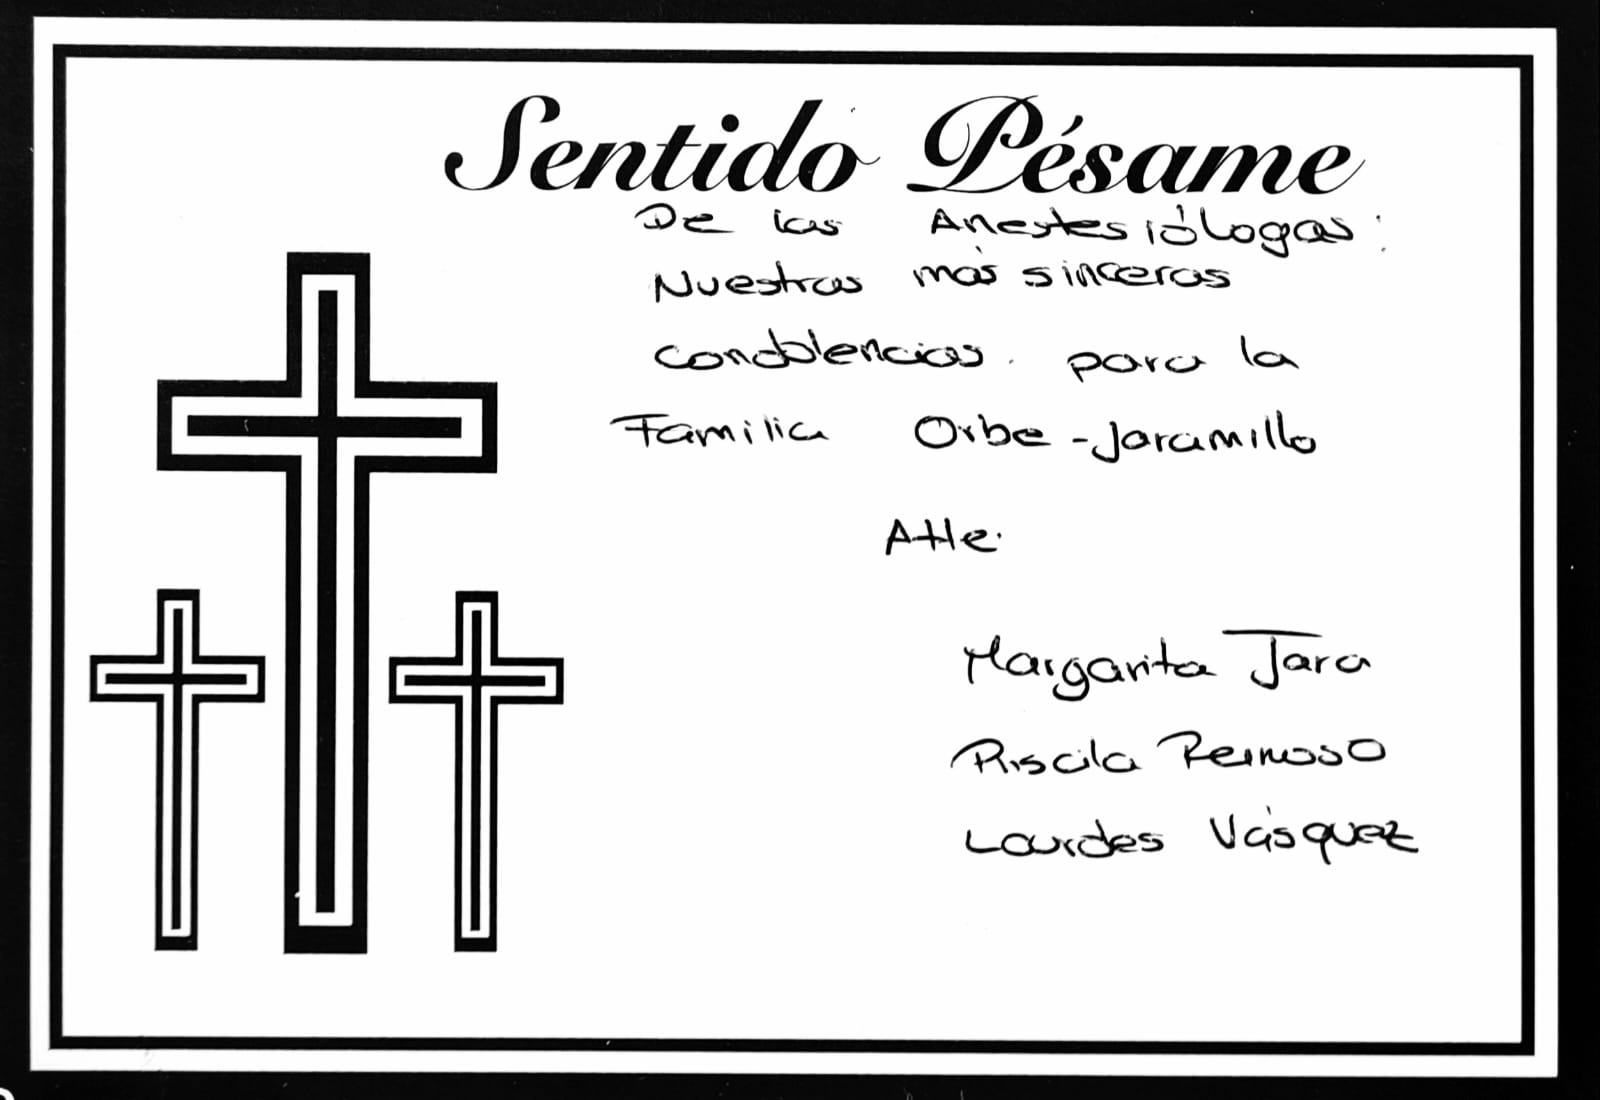 Sentido Pésame
De las Anestesiólogas:
Nuestras más sinceras
condolencias. para la
Familia Orbe-Jaramillo
Atte.
Margarita Jara
Priscila Reinoso
Lourdes Vásquez